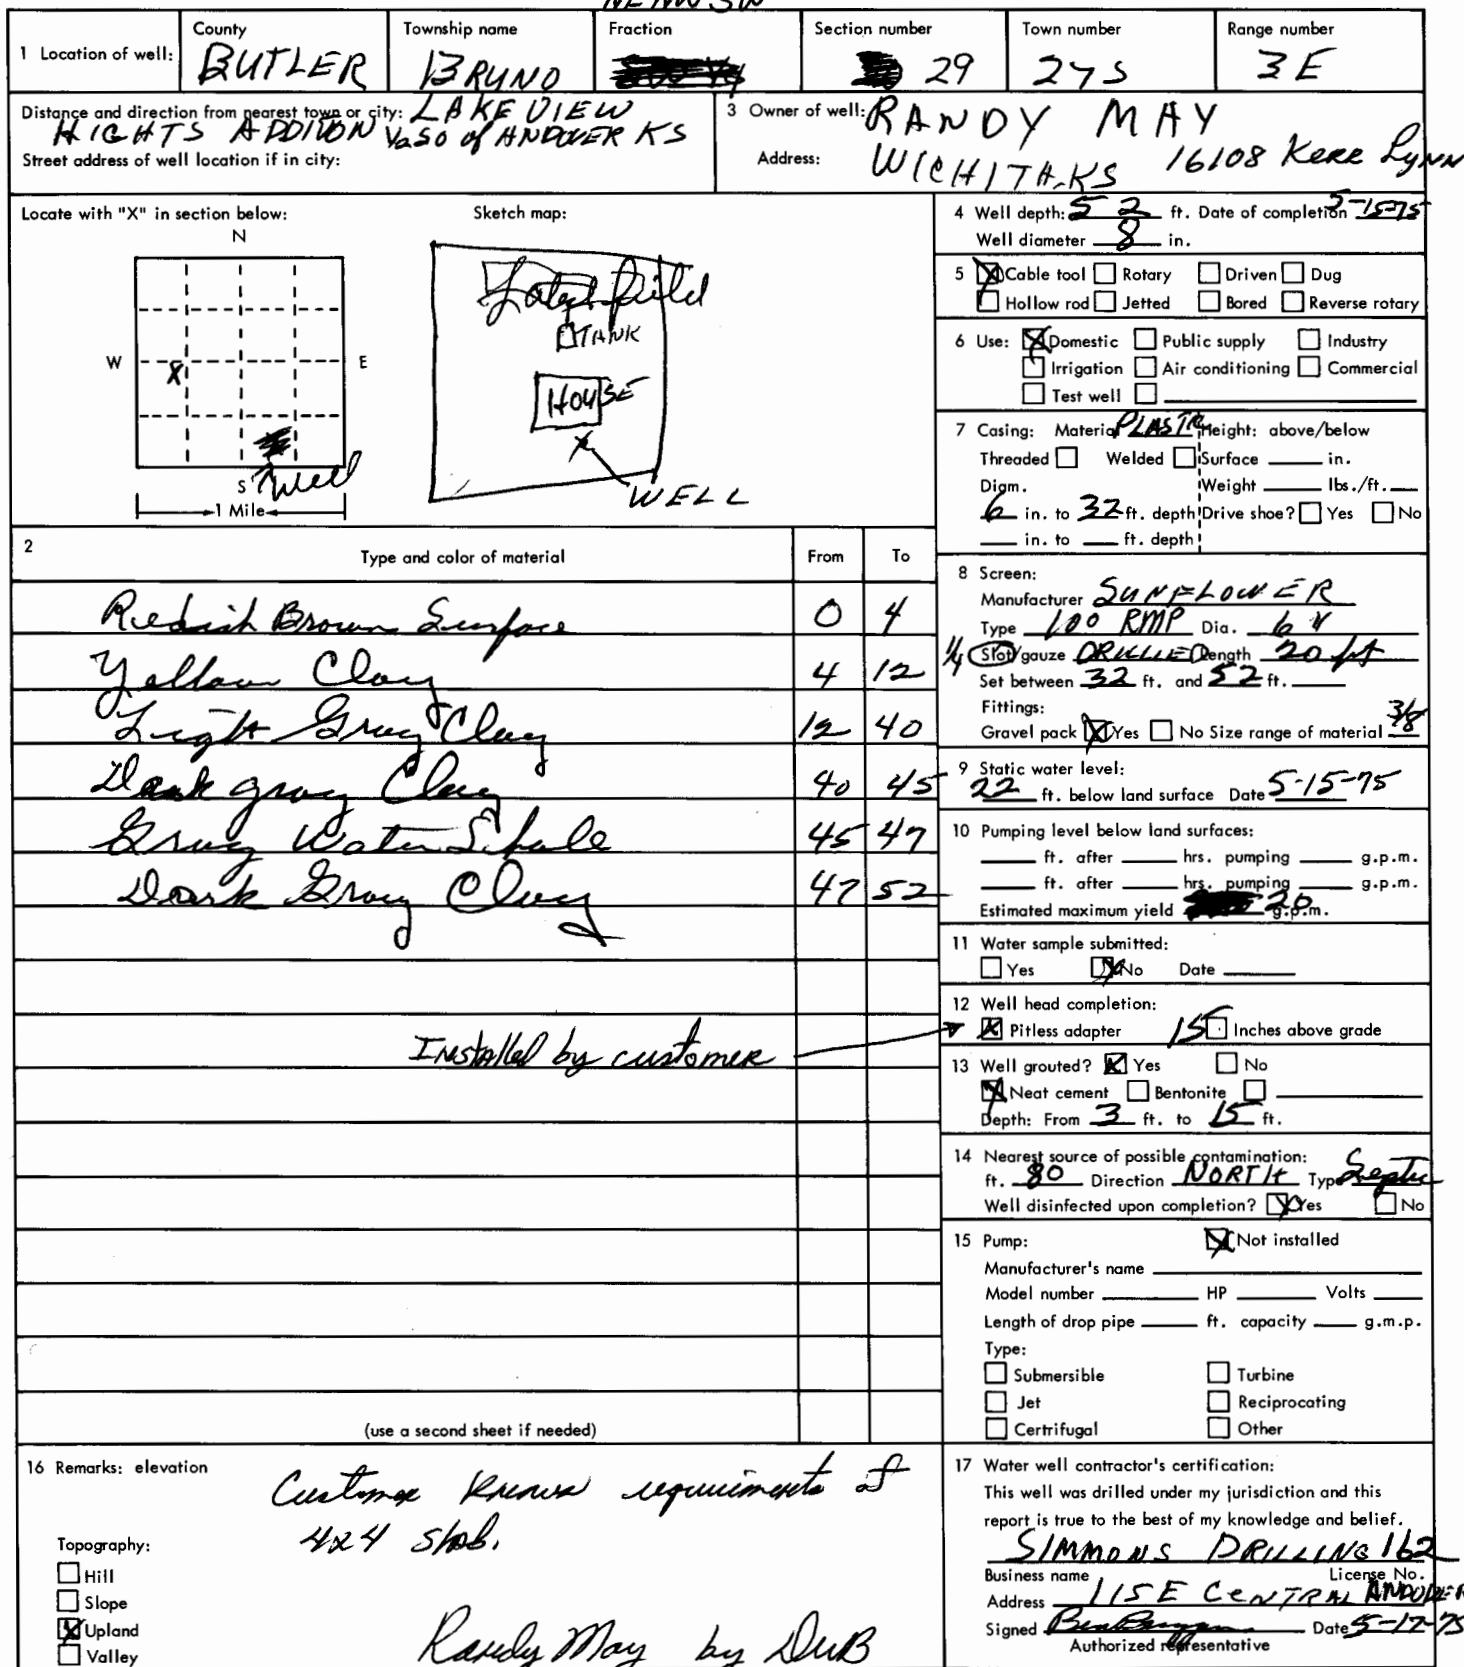 NE NW SW
County Township name Fraction Section number Town number Range number
1 Location of well: BUTLER BRUNO 29 27S 3E
Distance and direction from nearest town or city: LAKE VIEW
HIGHTS ADDITION ½ SO of ANDOVER KS
Street address of well location if in city:
3 Owner of well: RANDY MAY
Address: WICHITA, KS 16108 Kere Lynn
Locate with "X" in section below:
N
W X E
S Well
1 Mile
Sketch map:
Lateral field
TANK
HOUSE
X
WELL
2 Type and color of material From To
Redish Brown Surface 0 4
Yellow Clay 4 12
Light Gray Clay 12 40
Dark gray Clay 40 45
Gray Water Shale 45 47
Dark Gray Clay 47 52
Installed by customer
(use a second sheet if needed)
4 Well depth: 52 ft. Date of completion 5-15-75
Well diameter 8 in.
5 Cable tool Rotary Driven Dug
Hollow rod Jetted Bored Reverse rotary
6 Use: Domestic Public supply Industry
Irrigation Air conditioning Commercial
Test well
7 Casing: Material PLASTIC Height: above/below
Threaded Welded Surface in.
Diam. Weight lbs./ft.
6 in. to 32 ft. depth Drive shoe? Yes No
in. to ft. depth
8 Screen:
Manufacturer SUNFLOWER
Type 100 RMP Dia. 6"
1/4 Slot/gauze DRILLED Length 20 ft
Set between 32 ft. and 52 ft.
Fittings:
Gravel pack Yes No Size range of material 3/8
9 Static water level:
22 ft. below land surface Date 5-15-75
10 Pumping level below land surfaces:
ft. after hrs. pumping g.p.m.
ft. after hrs. pumping g.p.m.
Estimated maximum yield 20 g.p.m.
11 Water sample submitted:
Yes No Date
12 Well head completion:
Pitless adapter 15 Inches above grade
13 Well grouted? Yes No
Neat cement Bentonite
Depth: From 3 ft. to 15 ft.
14 Nearest source of possible contamination:
ft. 80 Direction NORTH Type Septic
Well disinfected upon completion? Yes No
15 Pump: Not installed
Manufacturer's name
Model number HP Volts
Length of drop pipe ft. capacity g.m.p.
Type:
Submersible Turbine
Jet Reciprocating
Certrifugal Other
16 Remarks: elevation
Customer knows requirements of
4x4 slab.
Topography:
Hill
Slope
Upland
Valley
Randy May by DuB
17 Water well contractor's certification:
This well was drilled under my jurisdiction and this
report is true to the best of my knowledge and belief.
SIMMONS DRILLING 162
Business name License No.
Address 115 E CENTRAL ANDOVER
Signed Date 5-17-75
Authorized representative